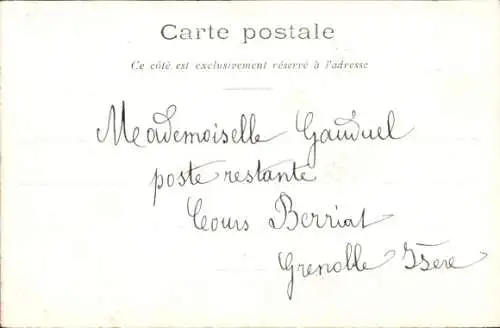 Carte postale
Ce côté est exclusivement réservé à l'adresse
Mademoiselle Gauduel
poste restante
Cours Berriat
Grenoble Isère